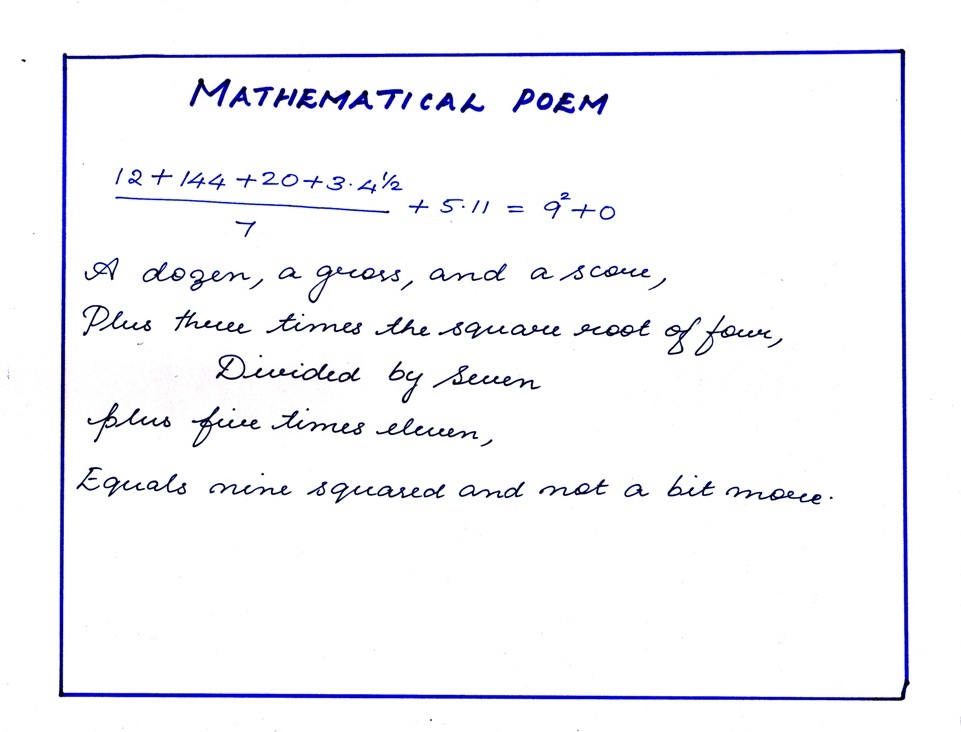 MATHEMATICAL POEM
12 + 144 + 20 + 3·4^½
7
+ 5·11 = 9² + 0
A dozen, a gross, and a score,
Plus three times the square root of four,
Divided by Seven
plus five times eleven,
Equals nine squared and not a bit more.